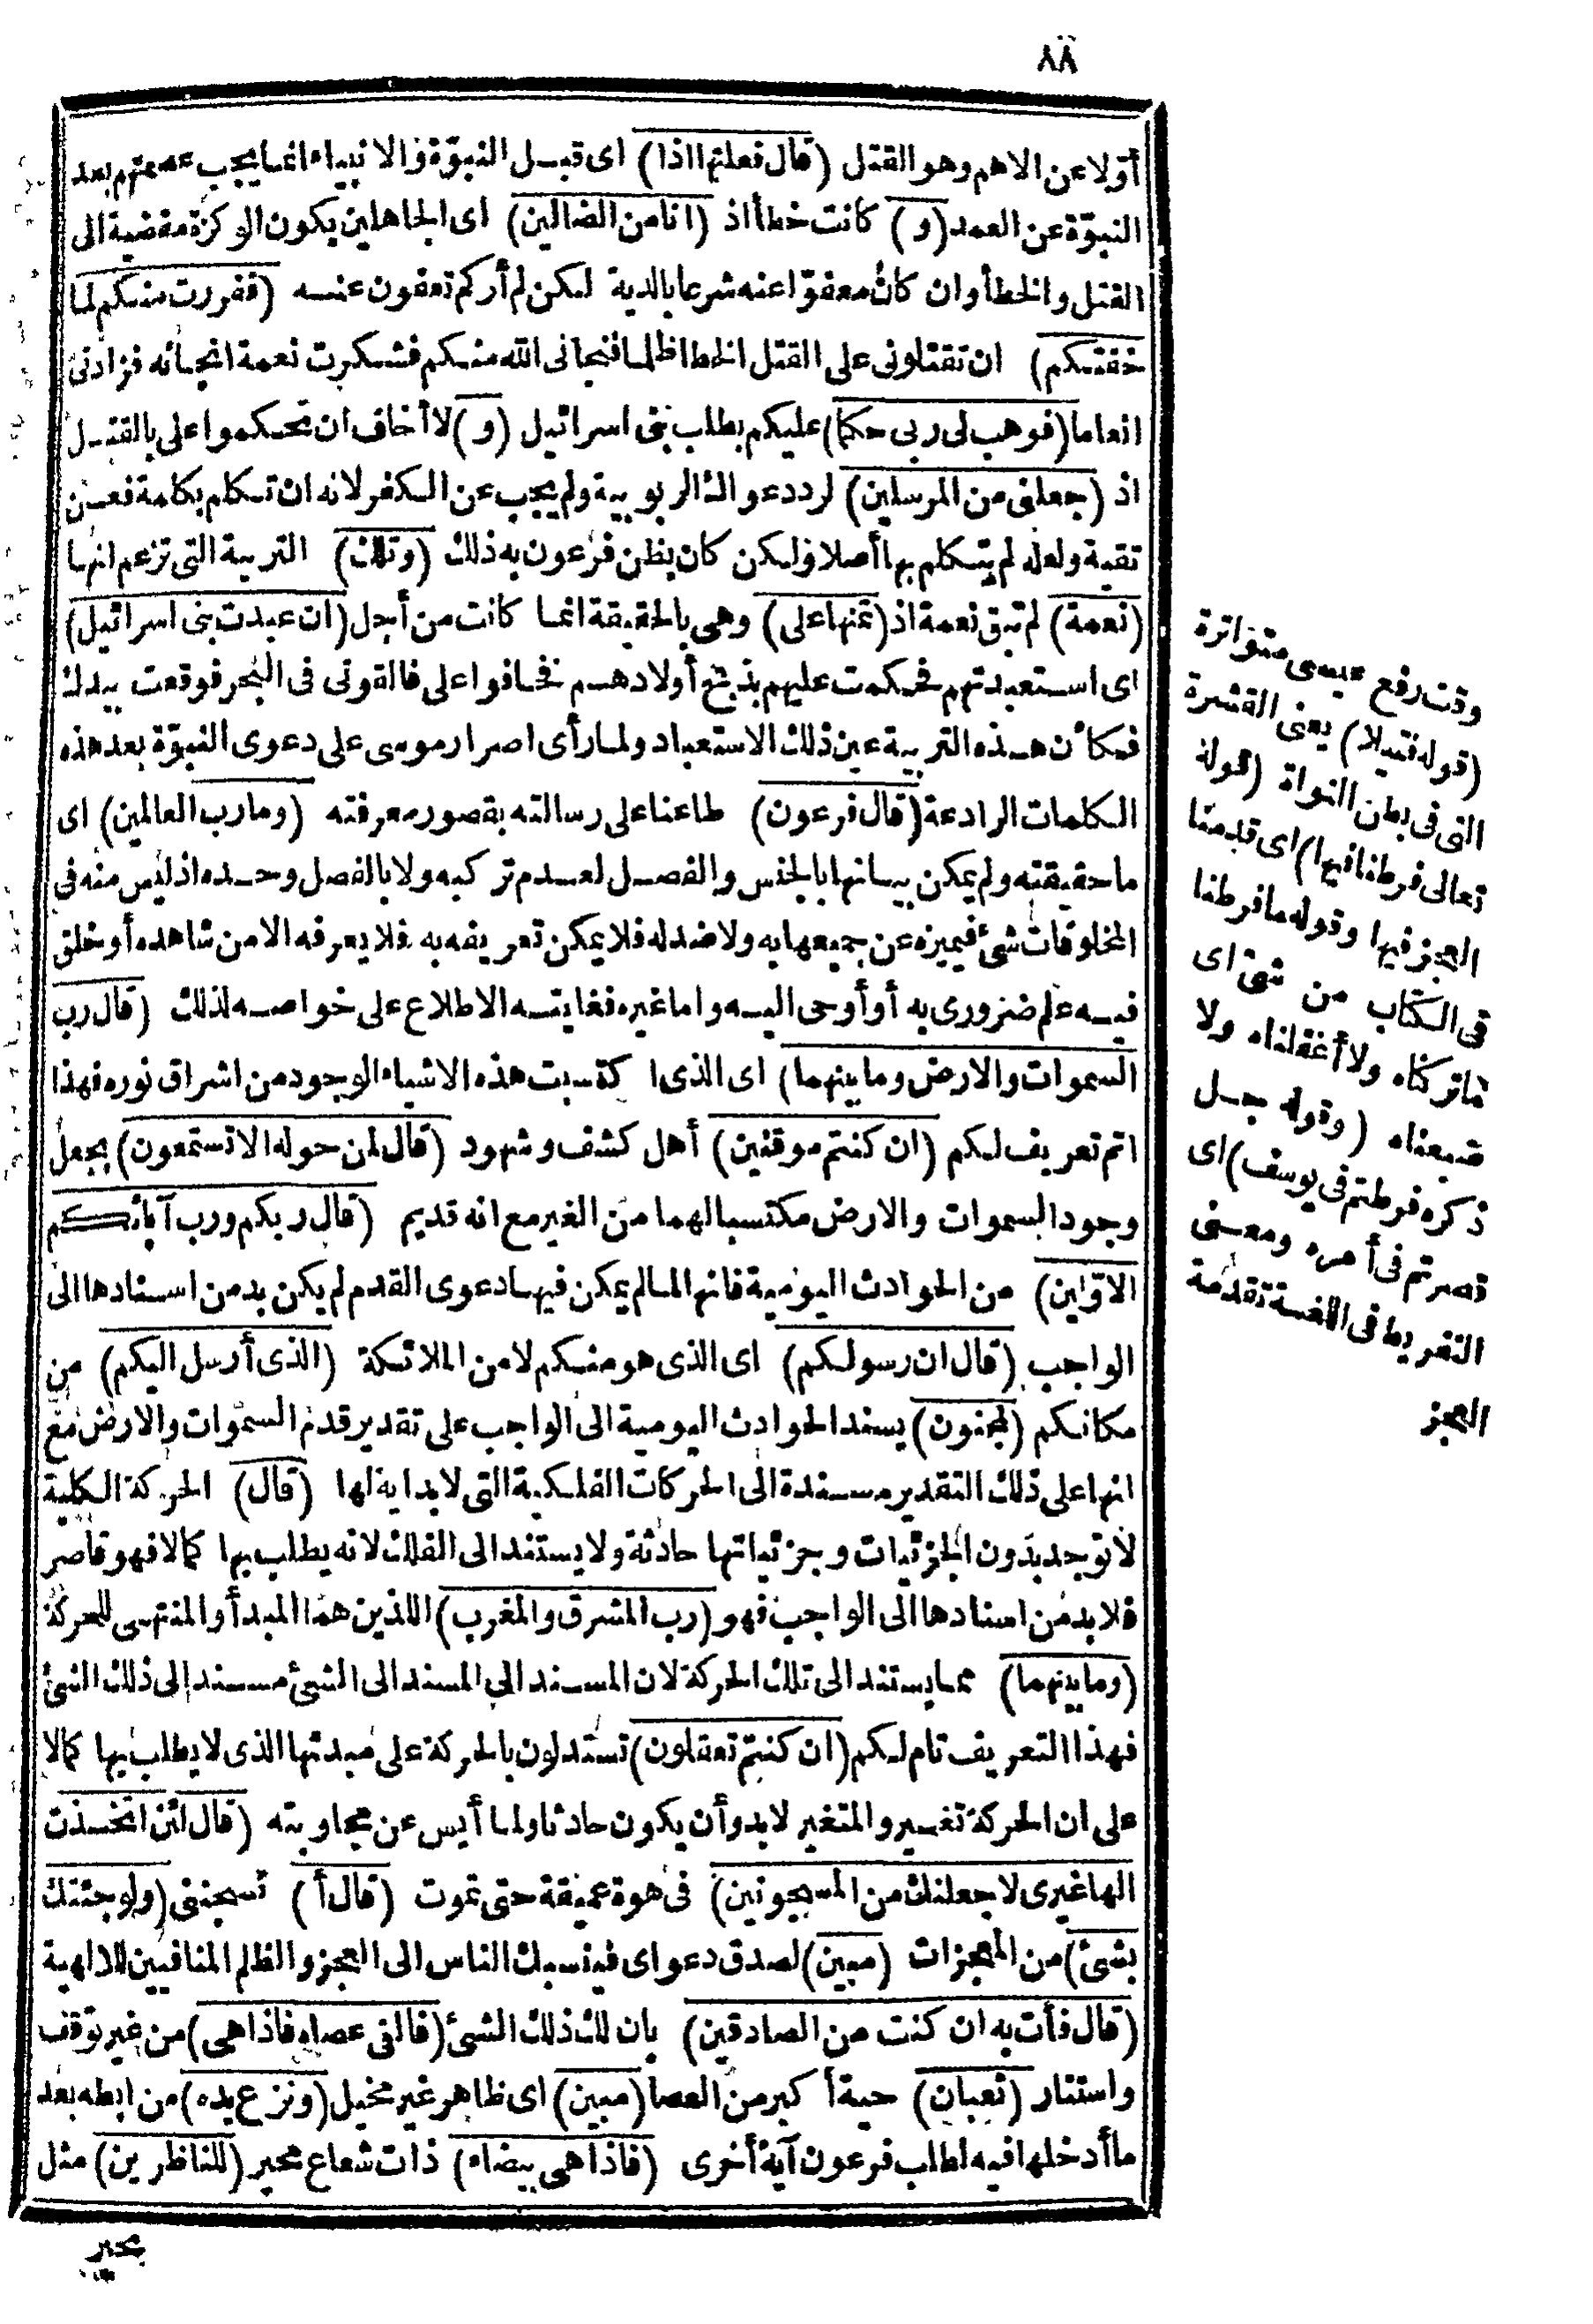 ٨٨
أوّلا عن الاهم وهو القتل (قال فعلتها اذا) اى قبل النبوّة والانبياء انما يجب عصمتهم بعد
النبوّة عن العمد (و) كانت خطأ اذ (انا من الضالين) اى الجاهلين بكون الوكزة مفضية الى
القتل والخطأ وان كان معفوّا عنه شرعا بالدية لكن لم أركم تعفون عنه (ففررت منكم لما
خفتكم) ان تقتلونى على القتل الخطا ظلما فنجانى الله منكم فشكرت نعمة انجائه فزادنى
انعاما (فوهب لى ربى حكما) عليكم بطلب بنى اسرائيل (و) لا أخاف ان تحكموا على بالقتل
اذ (جعلنى من المرسلين) لرد دعواك الربوبية ولم يجب عن الكفر لانه ان تكلم بكلمة فعن
تقية ولعله لم يتكلم بها أصلا ولكن كان يظن فرعون به ذلك (وتلك) التربية التى تزعم انها
(نعمة) لم تبق نعمة اذ (تمنها على) وهى بالحقيقة انما كانت من أجل (ان عبدت بنى اسرائيل)
اى استعبدتهم فحكمت عليهم بذبح أولادهم فخافوا على فالقونى فى البحر فوقعت بيدك
فكأن هذه التربية عين ذلك الاستعباد ولما رأى اصرار موسى على دعوى النبوّة بعد هذه
الكلمات الرادعة (قال فرعون) طاعنا على رسالته بقصور معرفته (وما رب العالمين) اى
ما حقيقته ولم يمكن بيانها بالجنس والفصل لعدم تركبه ولا بالفصل وحده اذ ليس منه فى
المخلوقات شئ فيميزه عن جميعها به ولا ضد له فلا يمكن تعريفه به فلا يعرفه الا من شاهده أو خلق
فيه علم ضرورى به أو أوحى اليه واما غيره فغايته الاطلاع على خواصه لذلك (قال رب
السموات والارض وما بينهما) اى الذى اكتسبت هذه الاشياء الوجود من اشراق نوره فهذا
اتم تعريف لكم (ان كنتم موقنين) أهل كشف وشهود (قال لمن حوله الا تستمعون) يجعل
وجود السموات والارض مكتسبا لهما من الغير مع انه قديم (قال ربكم ورب آبائكم
الاوّلين) من الحوادث اليومية فانها لما لم يمكن فيها دعوى القدم لم يكن بد من اسنادها الى
الواجب (قال ان رسولكم) اى الذى هو منكم لا من الملائكة (الذى أرسل اليكم) من
مكانكم (لمجنون) يسند الحوادث اليومية الى الواجب على تقدير قدم السموات والارض مع
انها على ذلك التقدير مسندة الى الحركات الفلكية التى لا بداية لها (قال) الحركة الكلية
لا توجد بدون الجزئيات وجزئياتها حادثة ولا يستند الى الفلك لانه يطلب بها كمالا فهو قاصر
فلا بد من اسنادها الى الواجب فهو (رب المشرق والمغرب) اللذين هما المبدأ والمنتهى للحركة
(وما بينهما) مما يستند الى تلك الحركة لان المسند الى المسند الى الشئ مسند الى ذلك الشئ
فهذا التعريف تام لكم (ان كنتم تعقلون) تستدلون بالحركة على مبدئها الذى لا يطلب بها كمالا
على ان الحركة تغيير والمتغير لابد وأن يكون حادثا ولما أيس عن مجاوبته (قال لئن اتخذت
الها غيرى لاجعلنك من المسجونين) فى هوة عميقة حتى تموت (قال أ) تسجننى (ولو جئتك
بشئ) من المعجزات (مبين) لصدق دعواى فينسبك الناس الى العجز والظلم المنافيين للالهية
(قال فأت به ان كنت من الصادقين) بان لك ذلك الشئ (فالقى عصاه فاذا هى) من غير توقف
واستتار (ثعبان) حية أكبر من العصا (مبين) اى ظاهر غير مخيل (ونزع يده) من ابطه بعد
ما أدخلها فيه لطلب فرعون آية أخرى (فاذا هى بيضاء) ذات شعاع محير (للناظرين) مثل
محير
وقت رفع عيسى متواترة
(قوله فتيلا) يعنى القشرة
التى فى بطن النواة (قوله
تعالى فرطنا فيها) اى قدمنا
العجز فيها وقوله ما فرطنا
فى الكتاب من شئ اى
ما تركناه ولا أغفلناه ولا
ضيعناه (وقوله جل
ذكره فرطتم فى يوسف) اى
قصرتم فى أمره ومعنى
التفريط فى اللغة تقدمة
العجز